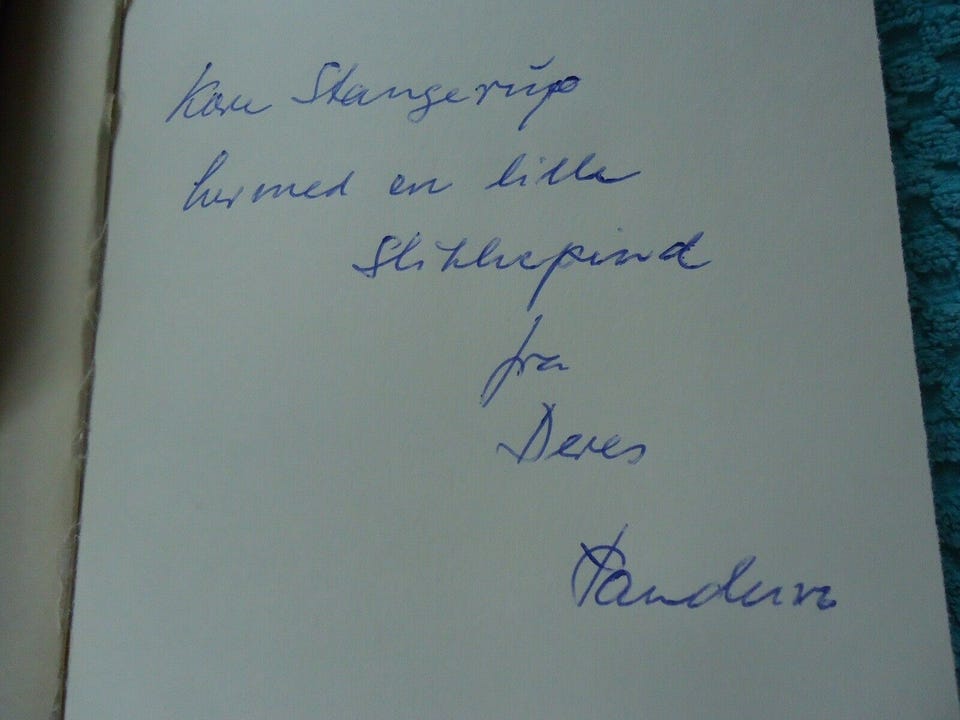 Kære Stangerup
hermed en lille
Slikkepind
fra
Deres
Panduro